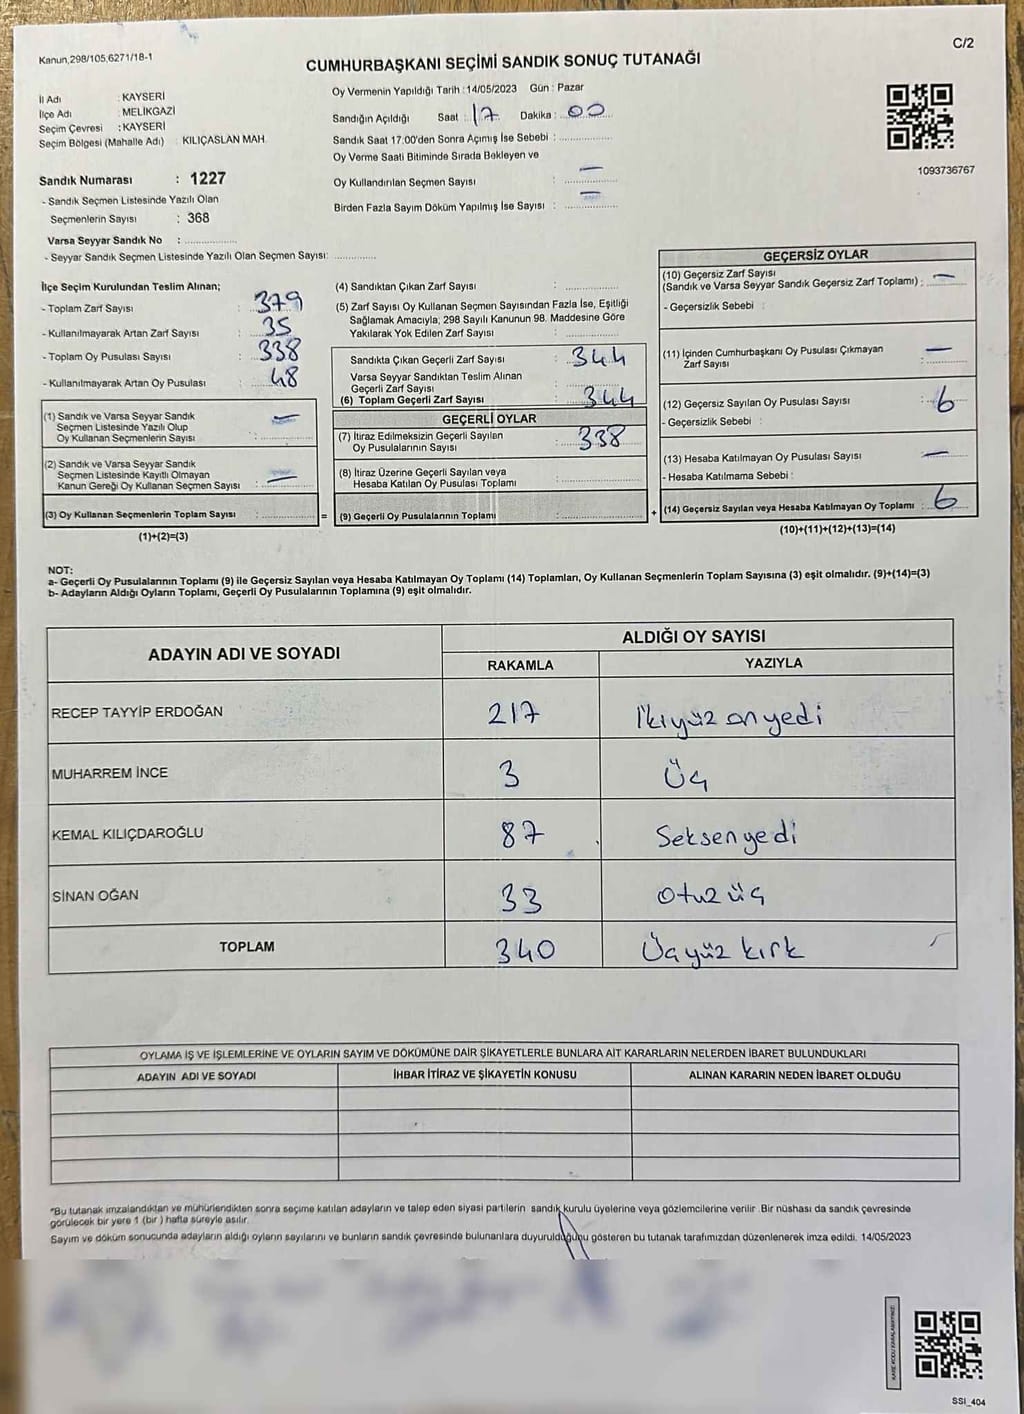 Kanun,298/105,6271/18-1
C/2
CUMHURBAŞKANI SEÇİMİ SANDIK SONUÇ TUTANAĞI
İl Adı : KAYSERİ
İlçe Adı : MELİKGAZİ
Seçim Çevresi : KAYSERİ
Seçim Bölgesi (Mahalle Adı) : KILIÇASLAN MAH.
Sandık Numarası : 1227
- Sandık Seçmen Listesinde Yazılı Olan
Seçmenlerin Sayısı : 368
Varsa Seyyar Sandık No : ................
- Seyyar Sandık Seçmen Listesinde Yazılı Olan Seçmen Sayısı: .............
Oy Vermenin Yapıldığı Tarih : 14/05/2023 Gün : Pazar
Sandığın Açıldığı Saat : 17 Dakika : 00
Sandık Saat 17:00'den Sonra Açımış İse Sebebi : ................
Oy Verme Saati Bitiminde Sırada Bekleyen ve
Oy Kullandırılan Seçmen Sayısı : —
Birden Fazla Sayım Döküm Yapılmış İse Sayısı : —
1093736767
İlçe Seçim Kurulundan Teslim Alınan;
- Toplam Zarf Sayısı : 379
- Kullanılmayarak Artan Zarf Sayısı : 35
- Toplam Oy Pusulası Sayısı : 338
- Kullanılmayarak Artan Oy Pusulası : 48
(1) Sandık ve Varsa Seyyar Sandık
Seçmen Listesinde Yazılı Olup
Oy Kullanan Seçmenlerin Sayısı : —
(2) Sandık ve Varsa Seyyar Sandık
Seçmen Listesinde Kayıtlı Olmayan
Kanun Gereği Oy Kullanan Seçmen Sayısı : —
(3) Oy Kullanan Seçmenlerin Toplam Sayısı : ................ =
(1)+(2)=(3)
(4) Sandıktan Çıkan Zarf Sayısı : ................
(5) Zarf Sayısı Oy Kullanan Seçmen Sayısından Fazla İse, Eşitliği
Sağlamak Amacıyla, 298 Sayılı Kanunun 98. Maddesine Göre
Yakılarak Yok Edilen Zarf Sayısı : ................
Sandıkta Çıkan Geçerli Zarf Sayısı : 344
Varsa Seyyar Sandıktan Teslim Alınan
Geçerli Zarf Sayısı : ................
(6) Toplam Geçerli Zarf Sayısı : 344
GEÇERLİ OYLAR
(7) İtiraz Edilmeksizin Geçerli Sayılan
Oy Pusulalarının Sayısı : 338
(8) İtiraz Üzerine Geçerli Sayılan veya
Hesaba Katılan Oy Pusulası Toplamı : ................
(9) Geçerli Oy Pusulalarının Toplamı : ................ +
GEÇERSİZ OYLAR
(10) Geçersiz Zarf Sayısı
(Sandık ve Varsa Seyyar Sandık Geçersiz Zarf Toplamı) : —
- Geçersizlik Sebebi :
(11) İçinden Cumhurbaşkanı Oy Pusulası Çıkmayan
Zarf Sayısı : —
(12) Geçersiz Sayılan Oy Pusulası Sayısı : 6
- Geçersizlik Sebebi :
(13) Hesaba Katılmayan Oy Pusulası Sayısı : —
- Hesaba Katılmama Sebebi :
(14) Geçersiz Sayılan veya Hesaba Katılmayan Oy Toplamı : 6
(10)+(11)+(12)+(13)=(14)
NOT:
a- Geçerli Oy Pusulalarının Toplamı (9) ile Geçersiz Sayılan veya Hesaba Katılmayan Oy Toplamı (14) Toplamları, Oy Kullanan Seçmenlerin Toplam Sayısına (3) eşit olmalıdır. (9)+(14)=(3)
b- Adayların Aldığı Oyların Toplamı, Geçerli Oy Pusulalarının Toplamına (9) eşit olmalıdır.
ADAYIN ADI VE SOYADI
ALDIĞI OY SAYISI
RAKAMLA YAZIYLA
RECEP TAYYİP ERDOĞAN 217 İkiyüz onyedi
MUHARREM İNCE 3 Üç
KEMAL KILIÇDAROĞLU 87 Seksenyedi
SİNAN OĞAN 33 Otuz üç
TOPLAM 340 Üçyüz kırk
OYLAMA İŞ VE İŞLEMLERİNE VE OYLARIN SAYIM VE DÖKÜMÜNE DAİR ŞİKAYETLERLE BUNLARA AİT KARARLARIN NELERDEN İBARET BULUNDUKLARI
ADAYIN ADI VE SOYADI İHBAR İTİRAZ VE ŞİKAYETİN KONUSU ALINAN KARARIN NEDEN İBARET OLDUĞU
*Bu tutanak imzalandıktan ve mühürlendikten sonra seçime katılan adayların ve talep eden siyasi partilerin sandık kurulu üyelerine veya gözlemcilerine verilir .Bir nüshası da sandık çevresinde
görülecek bir yere 1 (bir ) hafta süreyle asılır.
Sayım ve döküm sonucunda adayların aldığı oyların sayılarını ve bunların sandık çevresinde bulunanlara duyurulduğunu gösteren bu tutanak tarafımızdan düzenlenerek imza edildi. 14/05/2023
KARE KODU KARALAMAYINIZ!
SSI_404